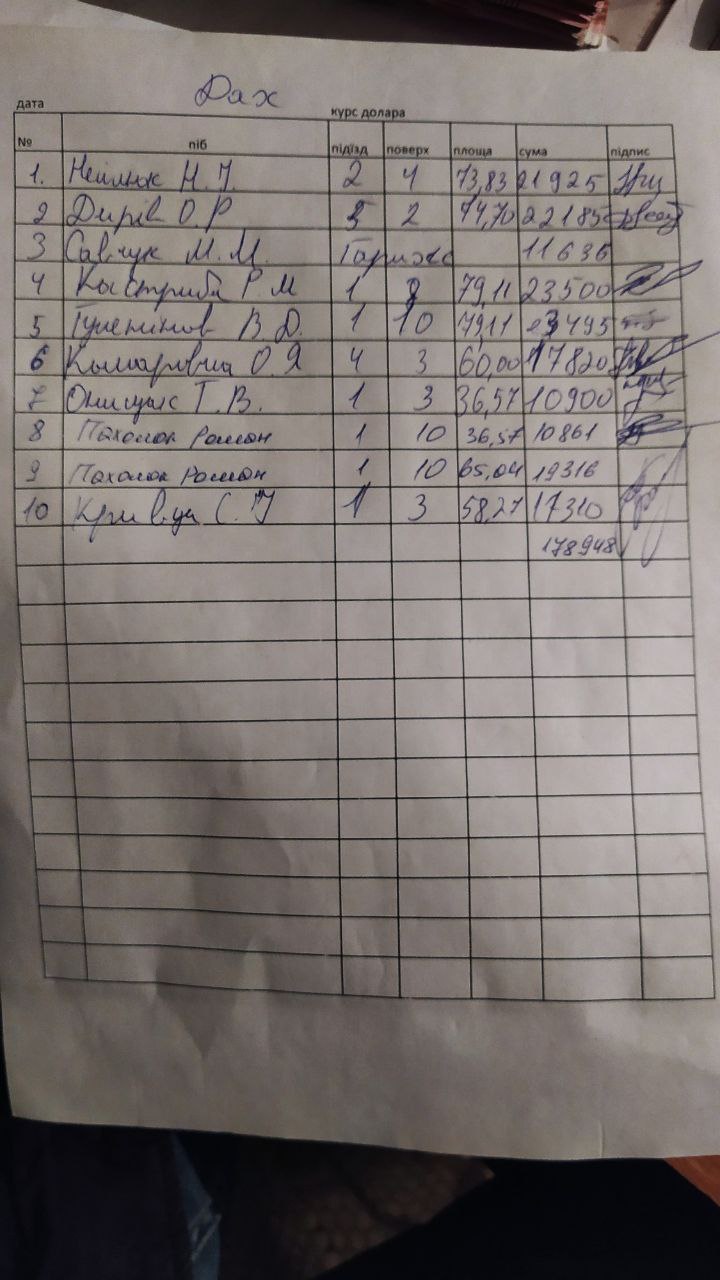 Дах
дата курс долара
№ піб підїзд поверх площа сума підпис
1. Н. 2 4 73,83 21925
2 Дирів О.Р 5 2 74,70 22185
3 Савчук М.М. Гараж 11636
4 Кастриба Р.М 1 79,11 23500
5 В.Д. 1 10 79,11 23495
6 О.Я 4 3 60,00 17820
7 Онищук Г.В. 1 3 36,57 10900
8 Пахолок Роман 1 10 36,57 10861
9 Пахолок Роман 1 10 65,04 19316
10 С. 1 3 58,27 17310
178948